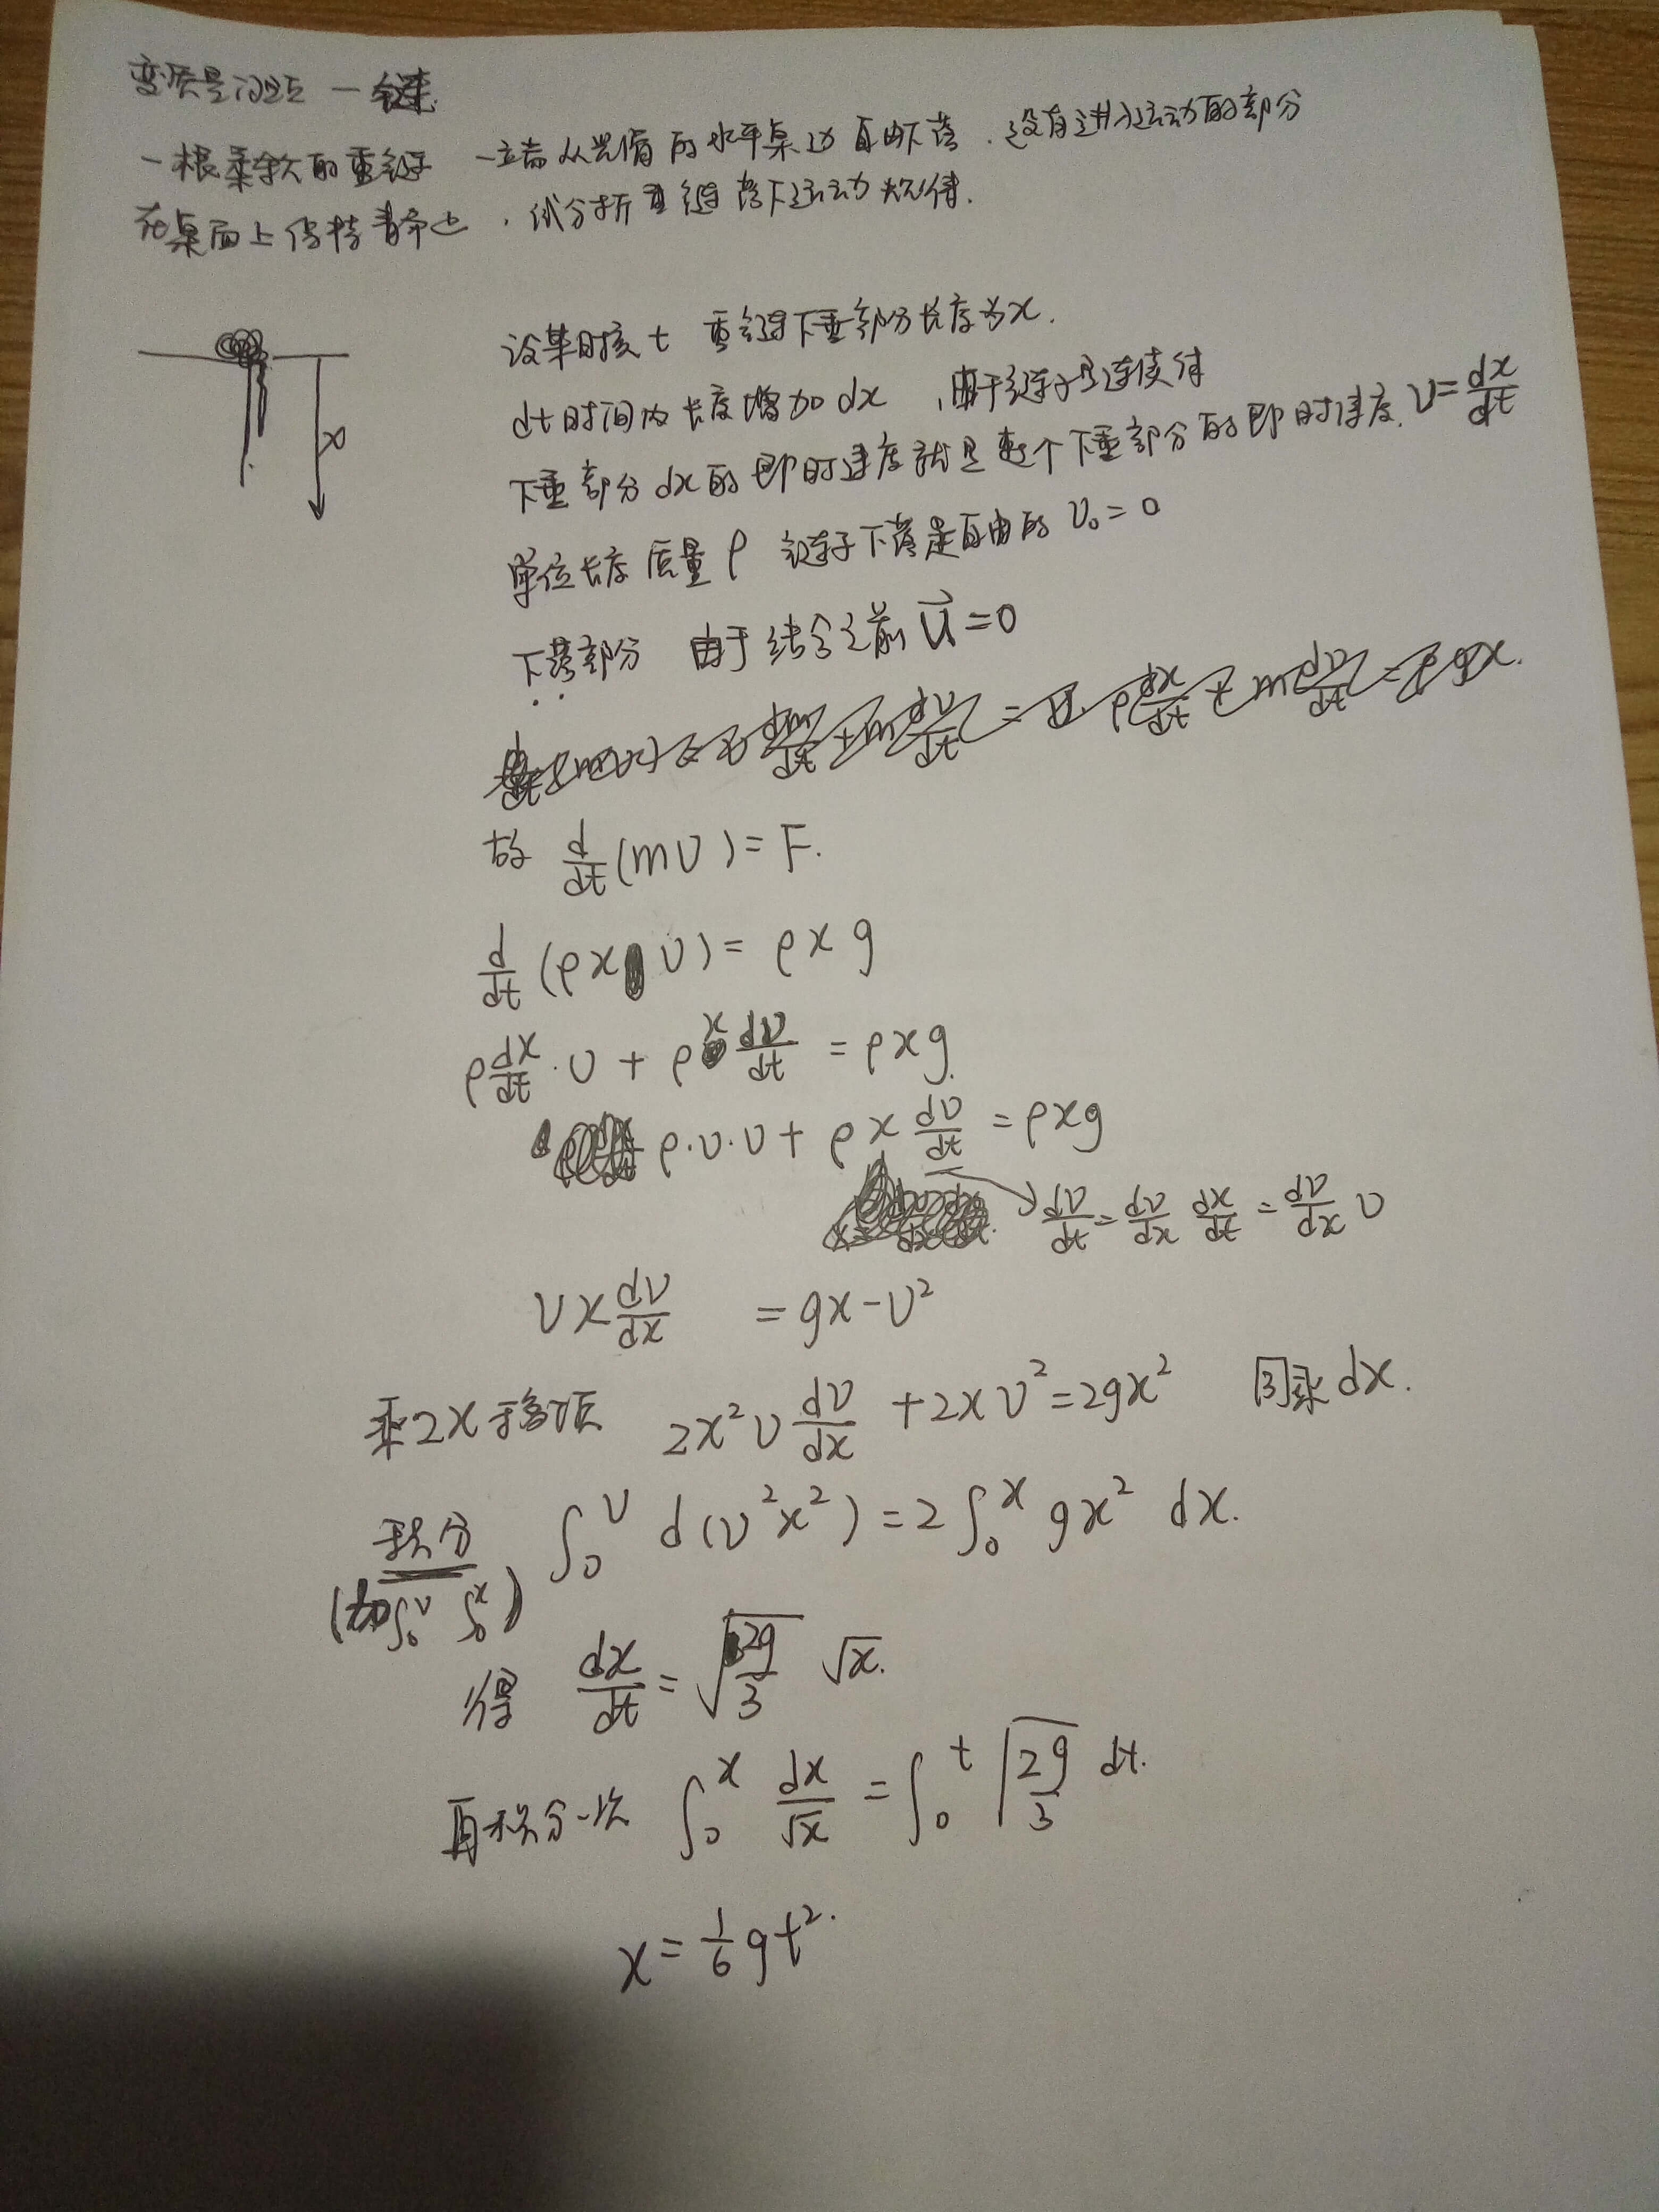 变质量问题 一链
一根柔软的重链子 一端从光滑的水平桌边自由下落.没有进入运动的部分
在桌面上保持静止,试分析重链落下运动规律.
x
设某时刻 t 重链下垂部分长度为x.
dt时间内长度增加dx,由于链子是连续体
下垂部分dx的即时速度就是整个下垂部分的即时速度.υ=dx/dt
单位长度质量ρ 链子下落是自由的 υ₀=0
下落部分 由于结合之前 u⃗=0
故 d/dt(mυ)=F.
d/dt(ρxυ)=ρxg
ρdx/dt·υ+ρx dυ/dt=ρxg.
ρ·υ·υ+ρx dυ/dt=ρxg
dυ/dt=dυ/dx dx/dt=dυ/dx υ
υx dυ/dx =gx-υ²
乘2x移项 2x²υ dυ/dx+2xυ²=2gx² 同乘dx.
积分 ∫₀^υ d(υ²x²)=2∫₀^x gx² dx.
(加∫₀^υ ∫₀^x)
得 dx/dt=√(2g/3) √x.
再积分一次 ∫₀^x dx/√x=∫₀^t √(2g/3) dt.
x=1/6gt².